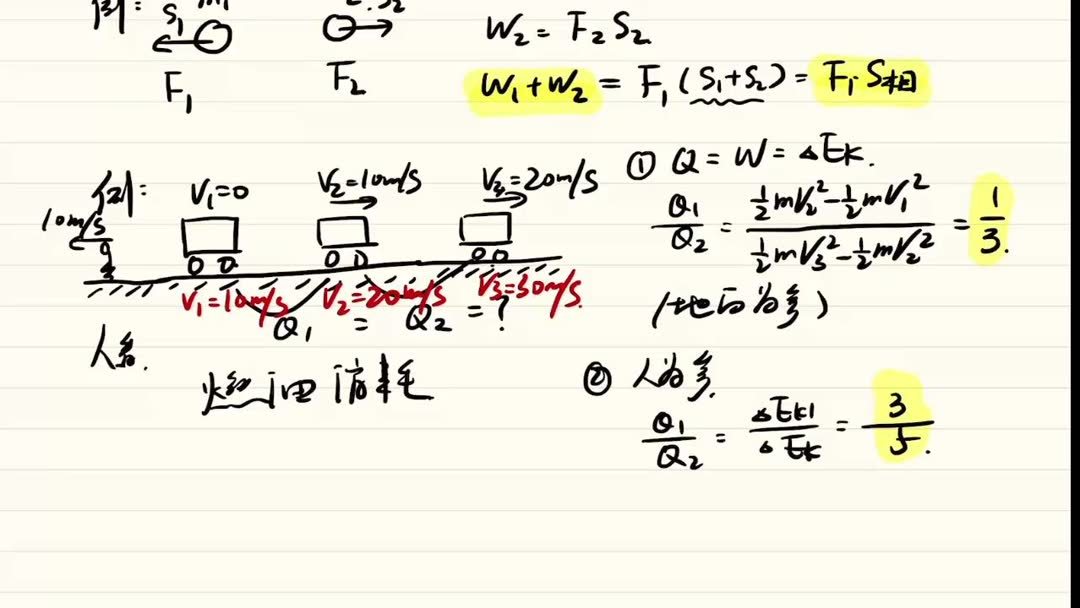 F₁
F₂
W₂ = F₂ S₂
W₁ + W₂ = F₁ (S₁+S₂) = F₁·S相
例:
V₁=0
V₂=10m/s
V₃=20m/s
10m/s
V₁=10m/s
V₂=20m/s
V₃=30m/s
Q₁ = Q₂ = ?
人参.
燃油消耗
① Q = W = ΔEk.
Q₁/Q₂ = (½mV₂² - ½mV₁²)/(½mV₃² - ½mV₂²) = 1/3.
(地面为参)
② 人为参
Q₁/Q₂ = ΔEk1/ΔEk = 3/5.